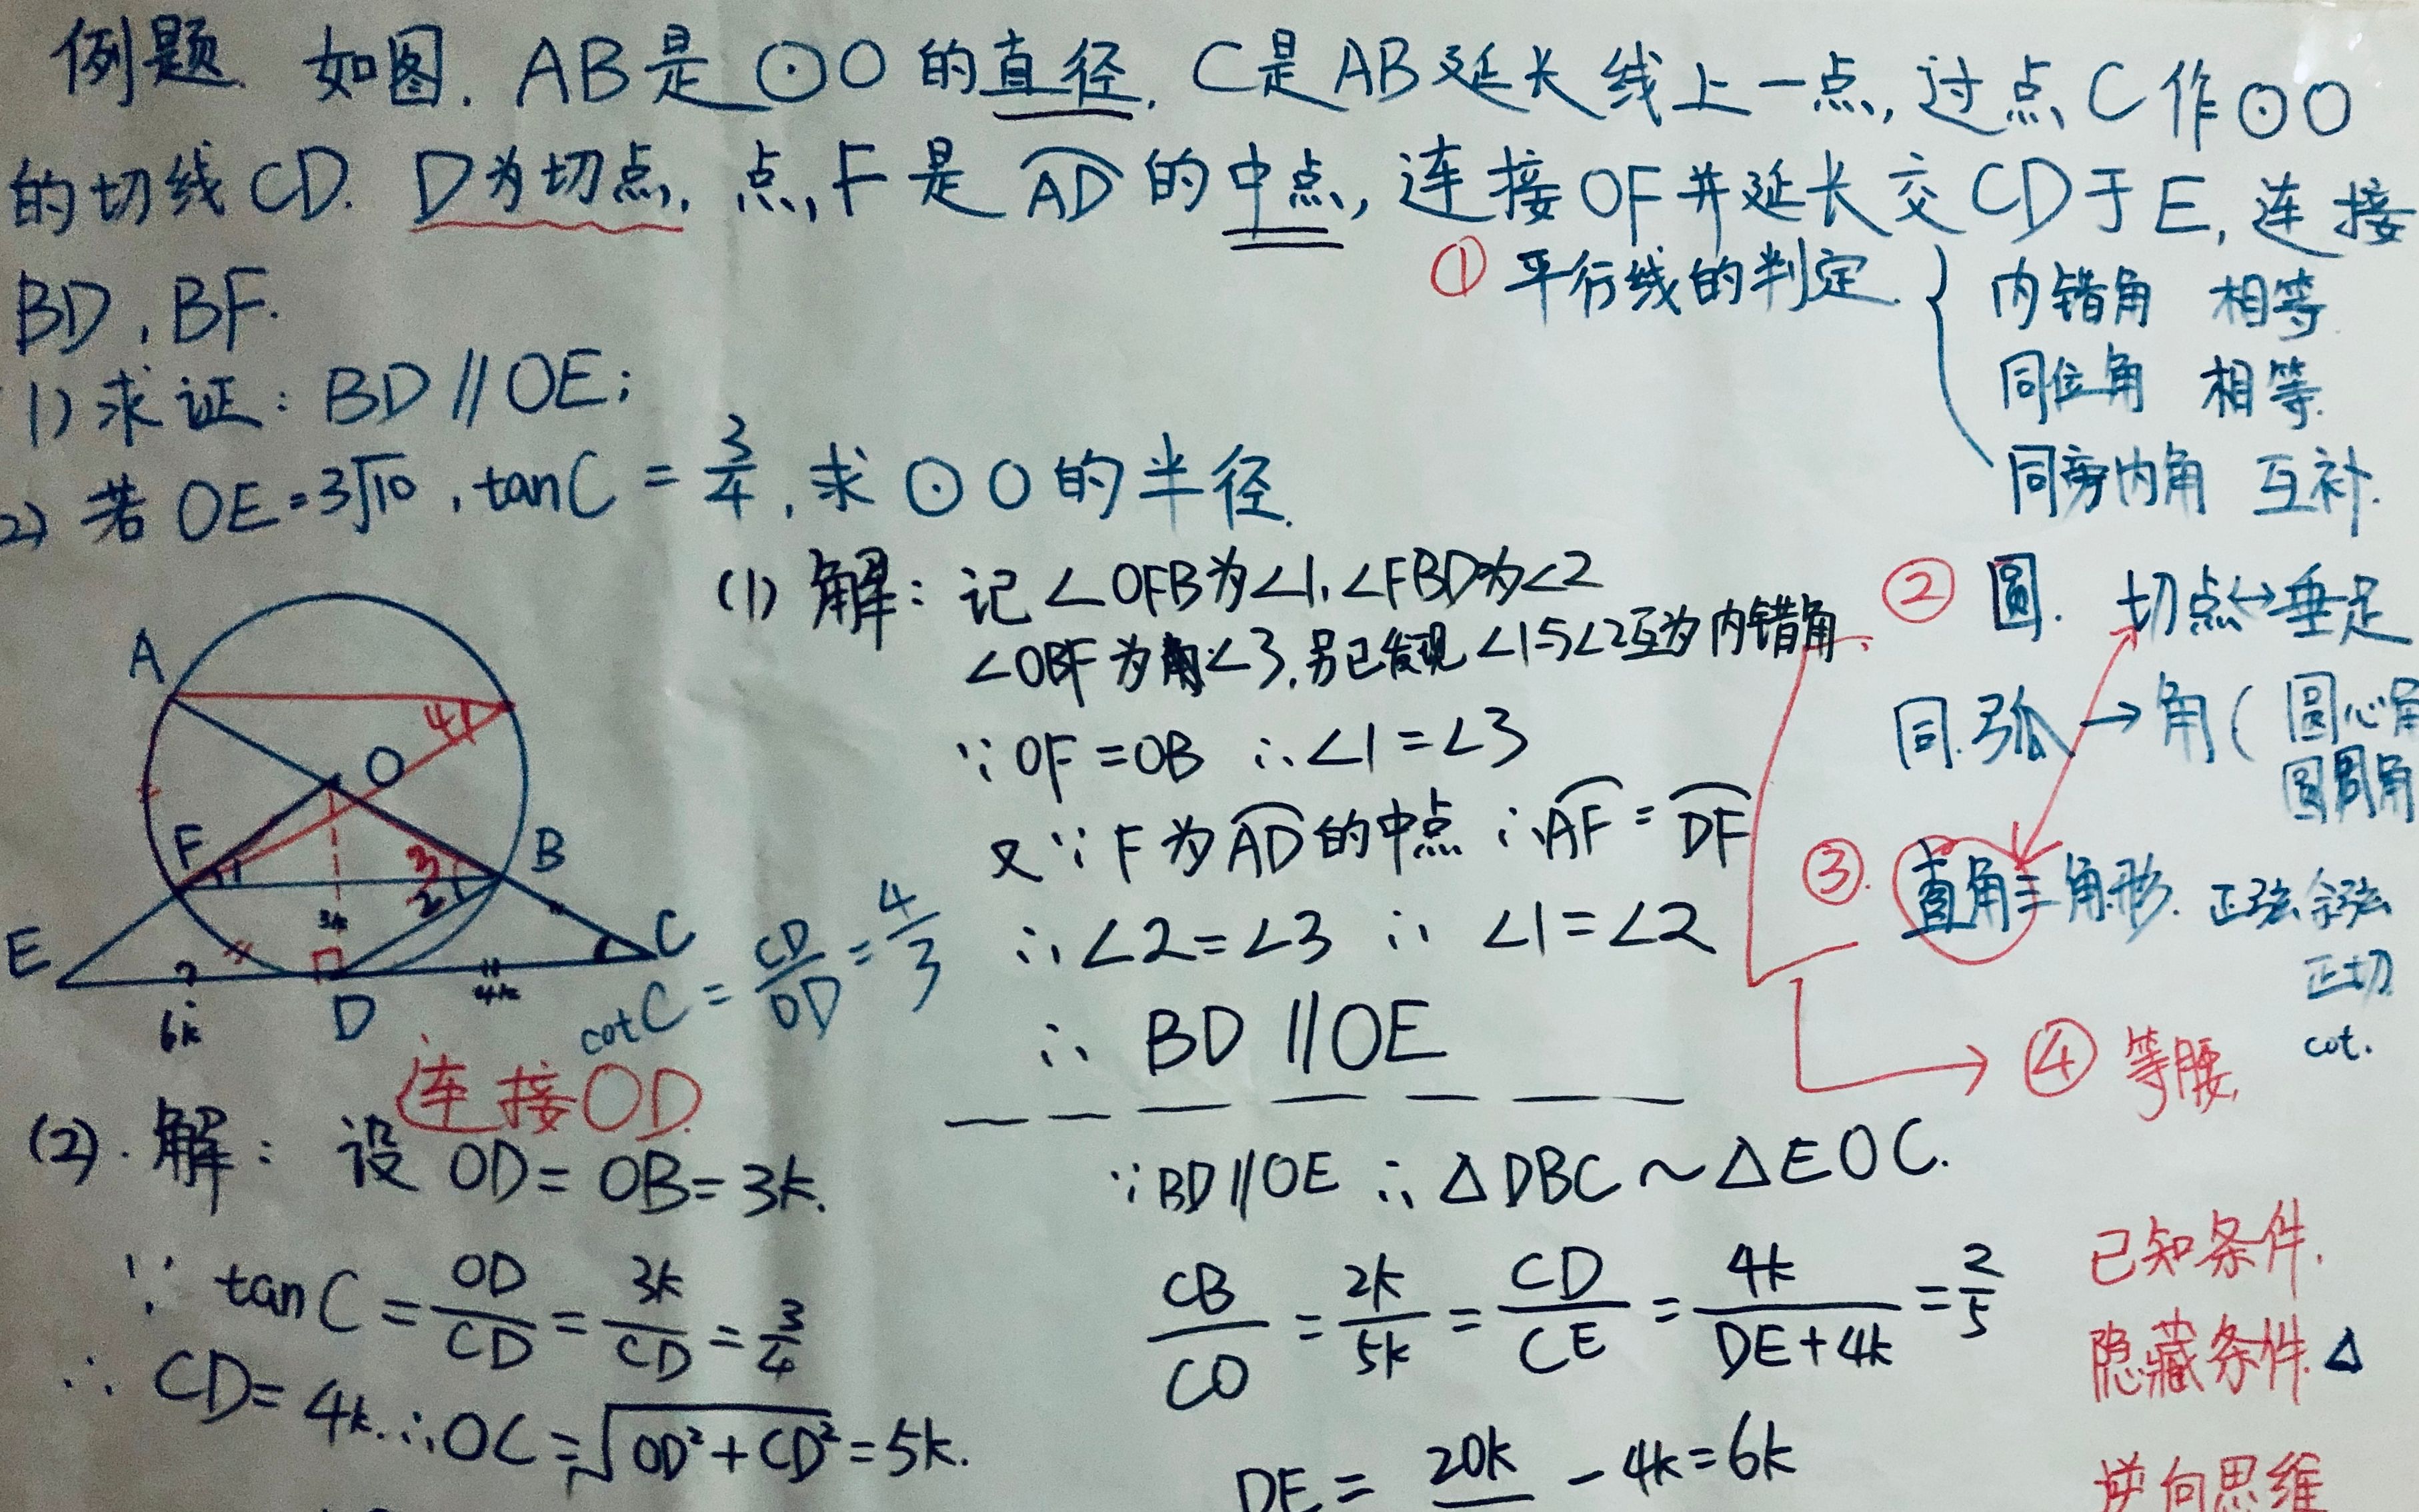 例题. 如图. AB是⊙O的直径. C是AB延长线上一点, 过点C作⊙O
的切线CD. D为切点. 点F是⌒AD的中点, 连接OF并延长交CD于E, 连接
BD, BF.
1) 求证: BD∥OE;
2) 若OE=3√10, tanC=3/4, 求⊙O的半径.
① 平行线的判定. {
内错角 相等
同位角 相等.
同旁内角 互补.
② 圆. 切点↔垂足
同弧→角( 圆心角
圆周角
③. 直角三角形. 正弦 余弦
正切
cot.
④ 等腰.
A
O
4
F
1
3
2
B
E
?
3k
D
C
6k
4k
cotC = CD/OD = 4/3
连接OD.
(1) 解: 记∠OFB为∠1, ∠FBD为∠2
∠OBF为∠3. 另已发现∠1与∠2互为内错角.
∵OF=OB ∴∠1=∠3
又∵F为⌒AD的中点 ∴⌒AF=⌒DF
∴∠2=∠3 ∴∠1=∠2
∴ BD∥OE
(2). 解: 设OD=OB=3k.
∵ tanC = OD/CD = 3k/CD = 3/4
∴ CD=4k. ∴OC=√(OD²+CD²)=5k.
∵BD∥OE ∴△DBC∼△EOC.
CB/CO = 2k/5k = CD/CE = 4k/(DE+4k) = 2/5
DE = 20k — 4k=6k
已知条件.
隐藏条件.△
逆向思维